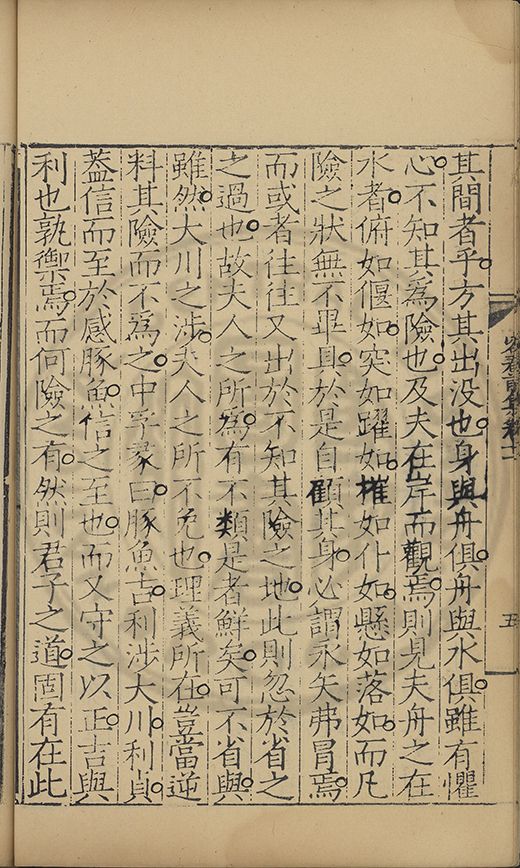 其間者乎方其出没也身與舟俱舟與水俱雖有懼
心不知其為險也及夫在岸而觀焉則見夫舟之在
水者俯如偃如突如躍如摧如仆如懸如落如而凡
險之狀無不畢具於是自顧其身必謂永矢弗冐焉
而或者往往又出於不知其險之地此則忽於省之
之過也故夫人之所為有不類是者鮮矣可不省與
雖然大川之涉夫人之所不免也理義所在豈當逆
料其險而不為之中孚彖曰豚魚吉利涉大川利貞
葢信而至於感豚魚信之至也而又守之以正吉與
利也孰禦焉而何險之有然則君子之道固有在此
集卷十一
五